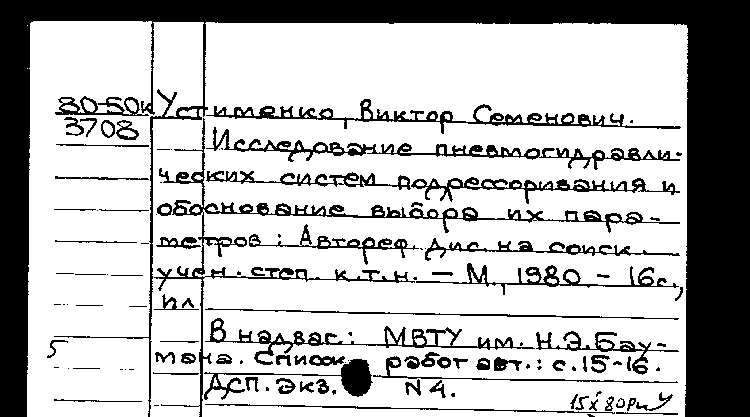 80-50к Устименко, Виктор Семенович.
3708 Исследование пневмогидравли-
ческих систем подрессоривания и
обоснование выбора их пара-
метров : Автореф. дис. на соиск.
учен. степ. к.т.н. – М., 1980 – 16с.,
ил
В надзаг.: МВТУ им. Н.Э.Бау-
5
мана. Список работ авт.: с.15-16.
ДСП. Экз. N4.
15X80